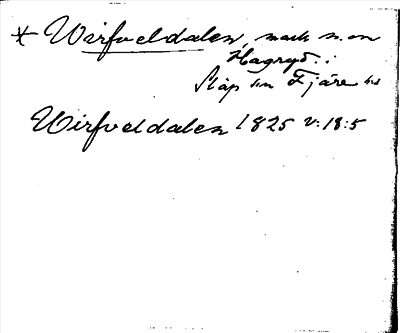 * Wirfveldalen, mark n. om
Hagryd. i
Släp sn Fjäre hd
Wirfveldalen 1825 v: 18:5